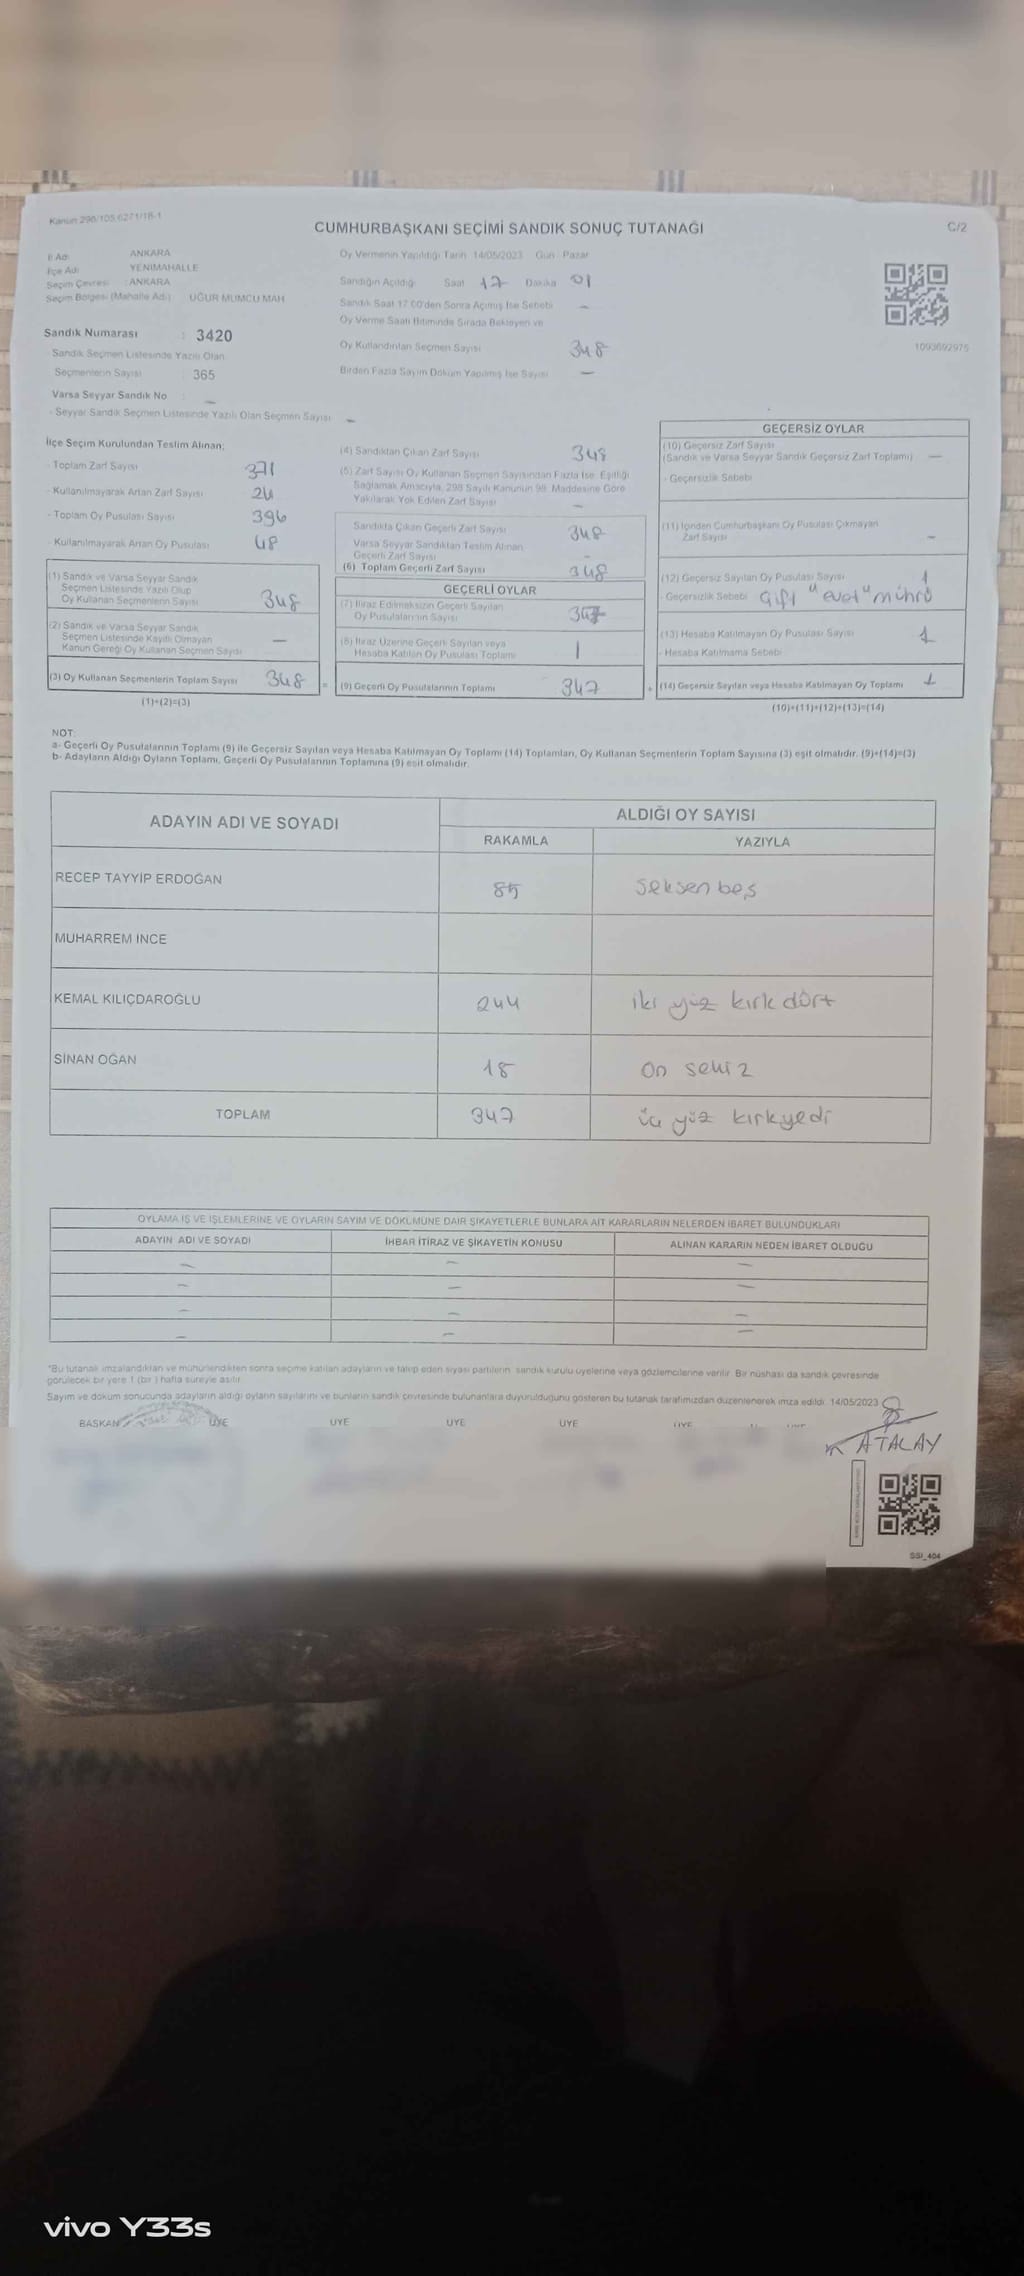 Kanun 298/105,6271/18-1
CUMHURBAŞKANI SEÇİMİ SANDIK SONUÇ TUTANAĞI
C/2
İl Adı : ANKARA
İlçe Adı : YENİMAHALLE
Seçim Çevresi : ANKARA
Seçim Bölgesi (Mahalle Adı) : UĞUR MUMCU MAH
Sandık Numarası : 3420
- Sandık Seçmen Listesinde Yazılı Olan
Seçmenlerin Sayısı : 365
Varsa Seyyar Sandık No : -
- Seyyar Sandık Seçmen Listesinde Yazılı Olan Seçmen Sayısı : -
Oy Vermenin Yapıldığı Tarih : 14/05/2023 Gün : Pazar
Sandığın Açıldığı Saat 17 Dakika 01
Sandık Saat 17:00'den Sonra Açılmış İse Sebebi -
Oy Verme Saati Bitiminde Sırada Bekleyen ve
Oy Kullandırılan Seçmen Sayısı 348
Birden Fazla Sayım Döküm Yapılmış İse Sayısı -
1093692975
İlçe Seçim Kurulundan Teslim Alınan;
- Toplam Zarf Sayısı 371
- Kullanılmayarak Artan Zarf Sayısı
- Toplam Oy Pusulası Sayısı 396
- Kullanılmayarak Artan Oy Pusulası 48
(1) Sandık ve Varsa Seyyar Sandık
Seçmen Listesinde Yazılı Olup
Oy Kullanan Seçmenlerin Sayısı 348
(2) Sandık ve Varsa Seyyar Sandık
Seçmen Listesinde Kayıtlı Olmayan
Kanun Gereği Oy Kullanan Seçmen Sayısı -
(3) Oy Kullanan Seçmenlerin Toplam Sayısı 348 =
(1)+(2)=(3)
(4) Sandıktan Çıkan Zarf Sayısı 348
(5) Zarf Sayısı Oy Kullanan Seçmen Sayısından Fazla İse; Eşitliği
Sağlamak Amacıyla, 298 Sayılı Kanunun 98. Maddesine Göre
Yakılarak Yok Edilen Zarf Sayısı -
Sandıkta Çıkan Geçerli Zarf Sayısı 348
Varsa Seyyar Sandıktan Teslim Alınan
Geçerli Zarf Sayısı -
(6) Toplam Geçerli Zarf Sayısı 348
GEÇERLİ OYLAR
(7) İtiraz Edilmeksizin Geçerli Sayılan
Oy Pusulalarının Sayısı 347
(8) İtiraz Üzerine Geçerli Sayılan veya
Hesaba Katılan Oy Pusulası Toplamı
(9) Geçerli Oy Pusulalarının Toplamı 347 +
GEÇERSİZ OYLAR
(10) Geçersiz Zarf Sayısı
(Sandık ve Varsa Seyyar Sandık Geçersiz Zarf Toplamı) -
- Geçersizlik Sebebi
(11) İçinden Cumhurbaşkanı Oy Pusulası Çıkmayan
Zarf Sayısı -
(12) Geçersiz Sayılan Oy Pusulası Sayısı 1
- Geçersizlik Sebebi Çift "evet" mührü
(13) Hesaba Katılmayan Oy Pusulası Sayısı 1
- Hesaba Katılmama Sebebi
(14) Geçersiz Sayılan veya Hesaba Katılmayan Oy Toplamı 1
(10)+(11)+(12)+(13)=(14)
NOT:
a- Geçerli Oy Pusulalarının Toplamı (9) ile Geçersiz Sayılan veya Hesaba Katılmayan Oy Toplamı (14) Toplamları, Oy Kullanan Seçmenlerin Toplam Sayısına (3) eşit olmalıdır. (9)+(14)=(3)
b- Adayların Aldığı Oyların Toplamı, Geçerli Oy Pusulalarının Toplamına (9) eşit olmalıdır.
ADAYIN ADI VE SOYADI
ALDIĞI OY SAYISI
RAKAMLA YAZIYLA
RECEP TAYYİP ERDOĞAN 85 seksen beş
MUHARREM İNCE
KEMAL KILIÇDAROĞLU 244 iki yüz kırk dört
SİNAN OĞAN 18 on sekiz
TOPLAM 347 üç yüz kırkyedi
OYLAMA İŞ VE İŞLEMLERİNE VE OYLARIN SAYIM VE DÖKÜMÜNE DAİR ŞİKAYETLERLE BUNLARA AİT KARARLARIN NELERDEN İBARET BULUNDUKLARI
ADAYIN ADI VE SOYADI İHBAR İTİRAZ VE ŞİKAYETİN KONUSU ALINAN KARARIN NEDEN İBARET OLDUĞU
- - -
- - -
- - -
- - -
*Bu tutanak imzalandıktan ve mühürlendikten sonra seçime katılan adayların ve talep eden siyasi partilerin, sandık kurulu üyelerine veya gözlemcilerine verilir. Bir nüshası da sandık çevresinde
görülecek bir yere 1 (bir ) hafta süreyle asılır.
Sayım ve döküm sonucunda adayların aldığı oyların sayılarını ve bunların sandık çevresinde bulunanlara duyurulduğunu gösteren bu tutanak tarafımızdan düzenlenerek imza edildi. 14/05/2023
BAŞKAN ÜYE ÜYE ÜYE ÜYE ÜYE
ATALAY
SSI_404
vivo Y33s